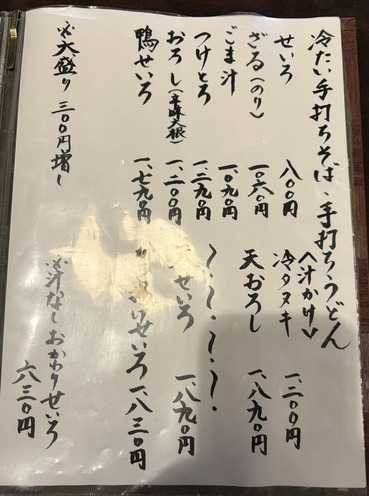 冷たい手打ちそば、手打ちうどん
せいろ 八〇〇円
ざる(のり) 一、〇六〇円
ごま汁 一、〇九〇円
つけとろ 一、三九〇円
おろし(辛味大根) 一、二〇〇円
鴨せいろ 一、七九〇円
※大盛り 三〇〇円増し
〈汁かけ〉
冷タヌキ 一、二〇〇円
天おろし 一、八九〇円
せいろ 一、八九〇円
せいろ 一、八三〇円
※汁なしおかわりせいろ
六三〇円